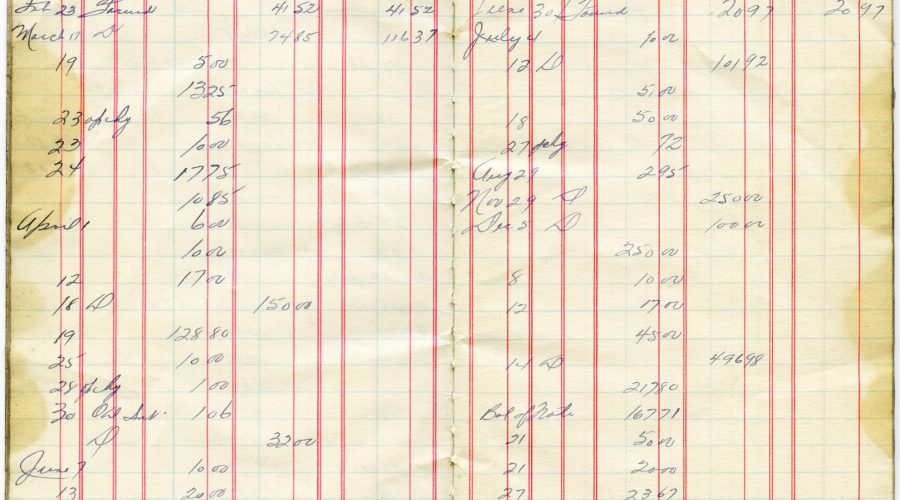 Feb 23 Forward 4152 4152
March 17 D 7485 11637
19 500
1325
23 of chg 56
23 1000
24 1775
1085
April 1 600
1000
12 1700
18 D 15000
19 12880
25 1000
28 of chg 100
30 106
D 3200
June 7 1000
13 2000
June 30 Forward 2097 2097
July 4 1000
12 D 10192
500
18 5000
27 72
Aug 29 295
Nov 29 D 25000
Dec 5 D 10000
25000
8 1000
12 1700
4500
14 D 49698
21780
Bal of Note 16771
21 5000
21 2000
27 2367